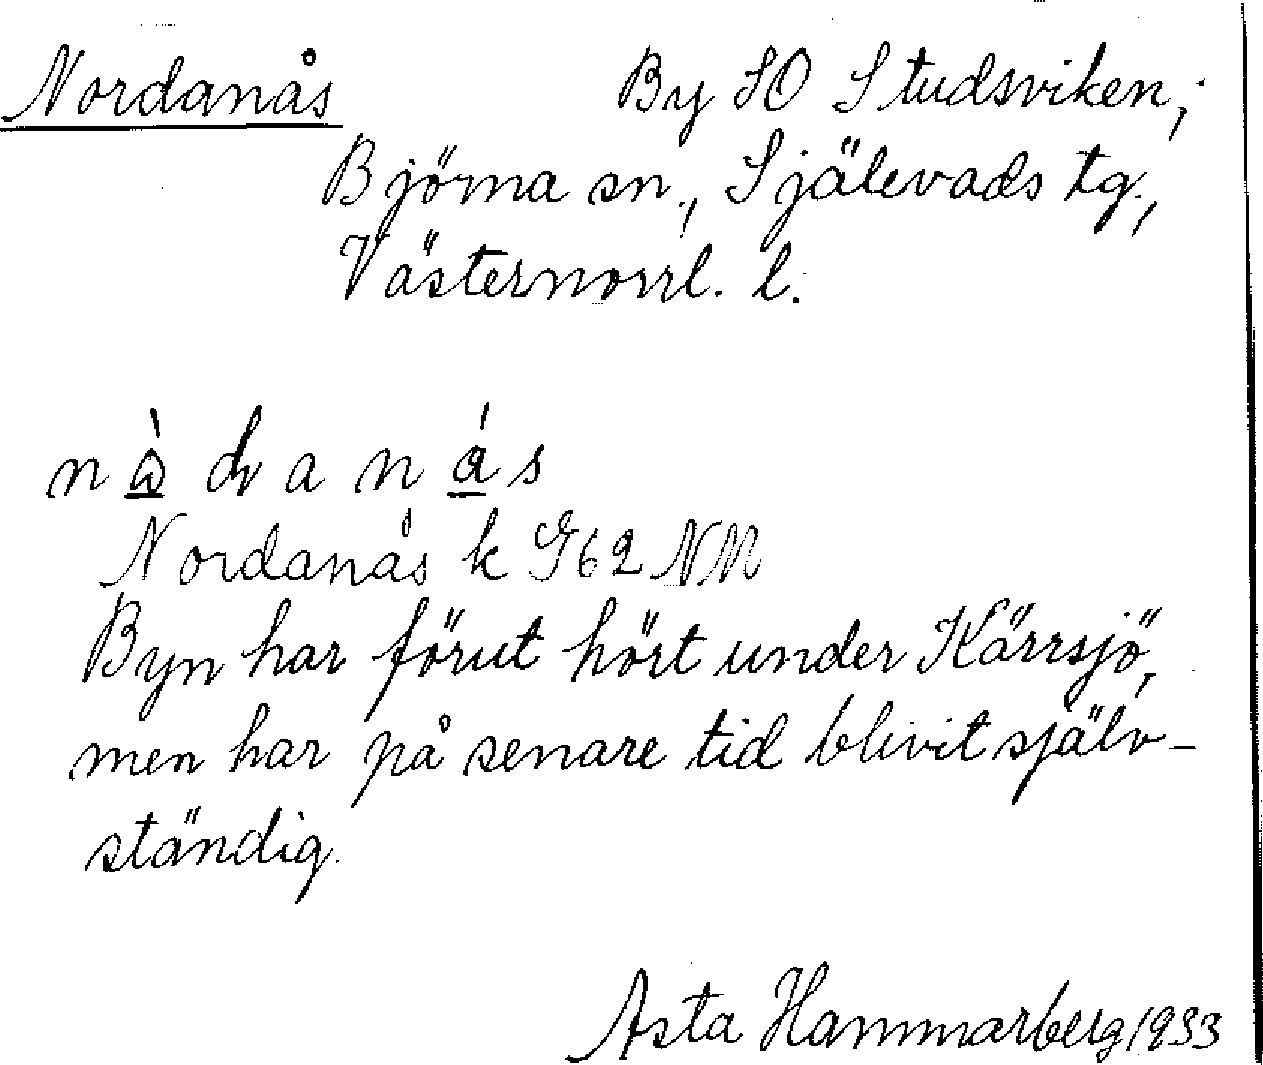 Nordanås By SO Studsviken,
Björna sn., Själevads tg.,
Västernorrl. l.
Nordanås k G62 NM
Byn har förut hört under Kärrsjö,
men har på senare tid blivit själv-
ständig.
Asta Hammarberg 1933